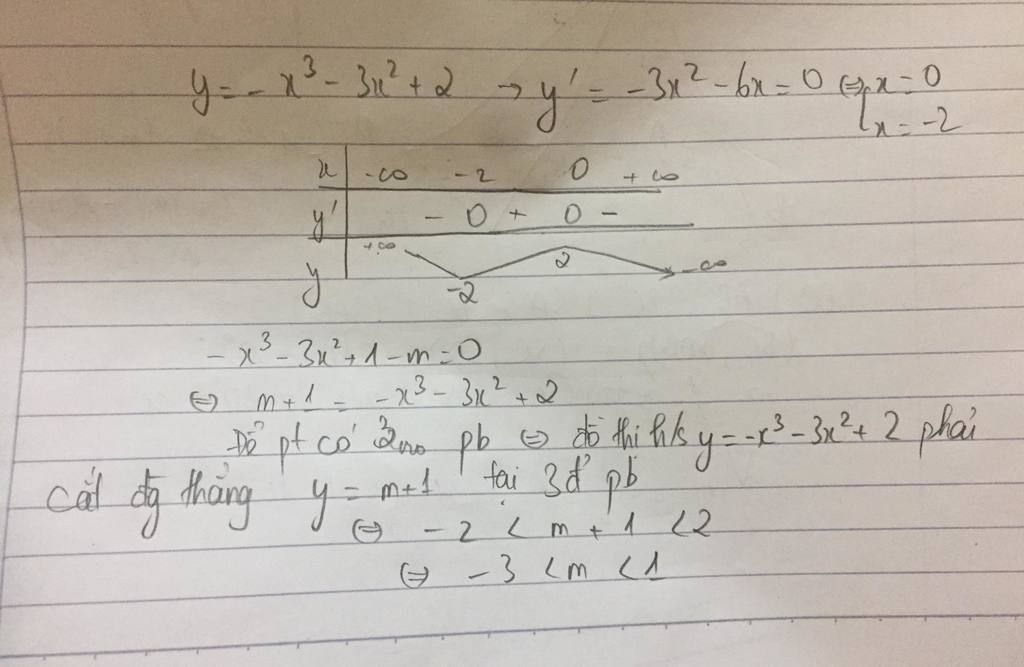 y = -x³ - 3x² + 2 → y' = -3x² - 6x = 0 ⇔ [x = 0
x = -2
x | -∞ -2 0 +∞
y' | - 0 + 0 -
y | +∞ -2 2 -∞
-x³ - 3x² + 1 - m = 0
⇔ m + 1 = -x³ - 3x² + 2
Để pt có 3 no pb ⇔ đồ thị h/s y = -x³ - 3x² + 2 phải
cắt đg thẳng y = m+1 tại 3đ pb
⇔ -2 < m + 1 < 2
⇔ -3 < m < 1